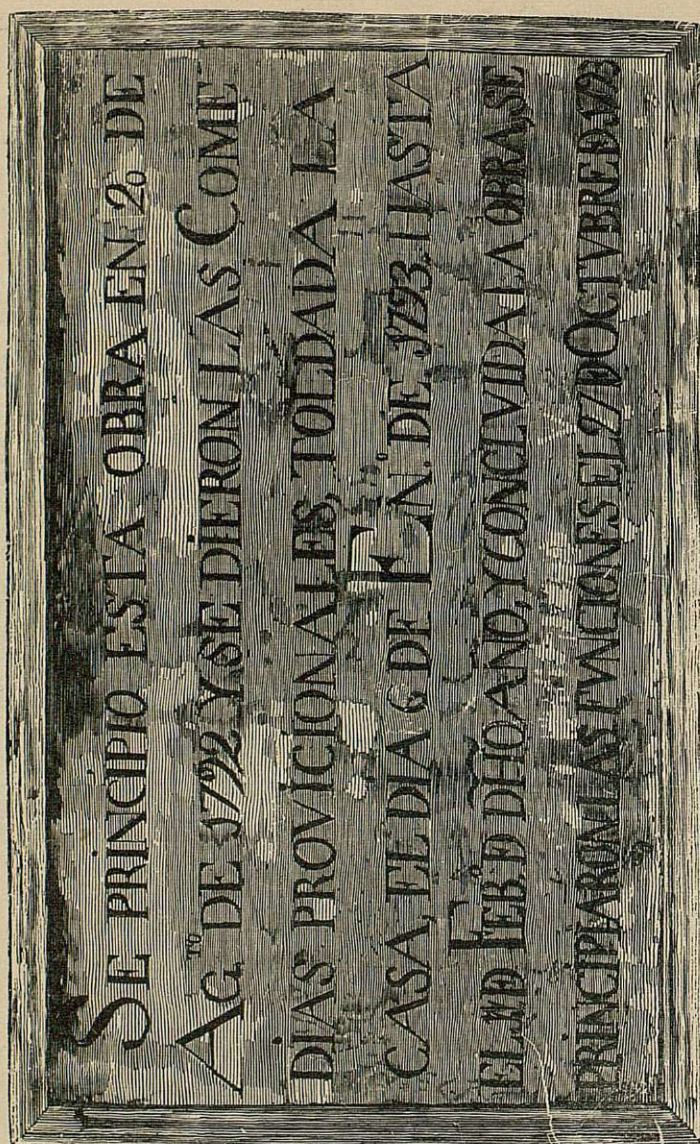 SE PRINCIPIO ESTA OBRA EN 20 DE
AG.TO DE 1792 Y SE DIERON LAS COME
DIAS PROVICIONALES, TOLDADA LA
CASA, EL DIA 6 DE EN.º DE 1793. HASTA
EL Đ FEB.º Đ DHO AÑO, Y CONCLVIDA LA OBRA, SE
PRINCIPIARON LAS FVNCIONES EL 27 Đ OCTVBRE Đ 1793